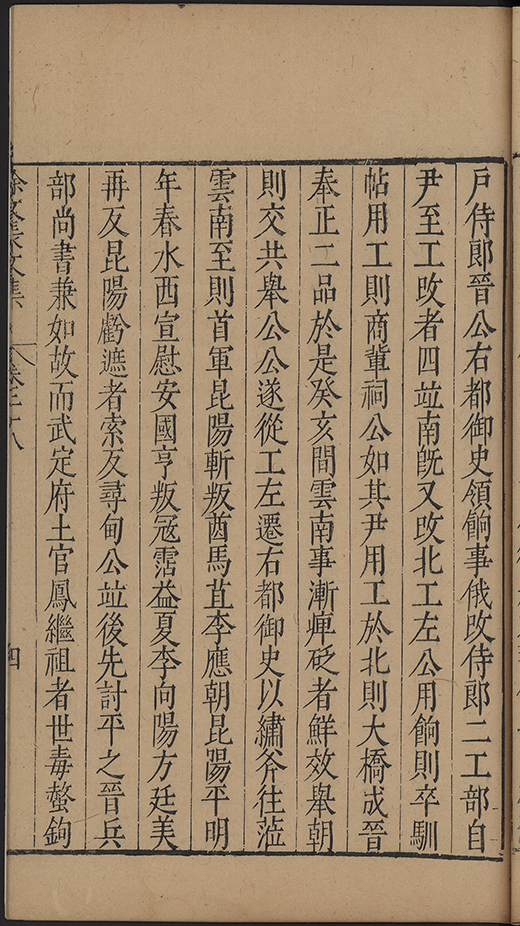 戸侍郎晉公右都御史領餉事俄攺侍郎二工部自
尹至工攺者四竝南旣又攺北工左公用餉則卒馴
帖用工則商輦祠公如其尹用工於北則大橋成晉
奉正二品於是癸亥間雲南事漸痺砭者鮮效舉朝
則交共舉公公遂從工左遷右都御史以繡斧往蒞
雲南至則首軍昆陽斬叛酋馬苴李應朝昆陽平明
年春水西宣慰安國亨叛冦霑益夏李向陽方廷美
再反昆陽虧遮者索反尋甸公竝後先討平之晉兵
部尚書兼如故而武定府土官鳳繼祖者世毒螫鉤
徐文長文集
卷二十八
四